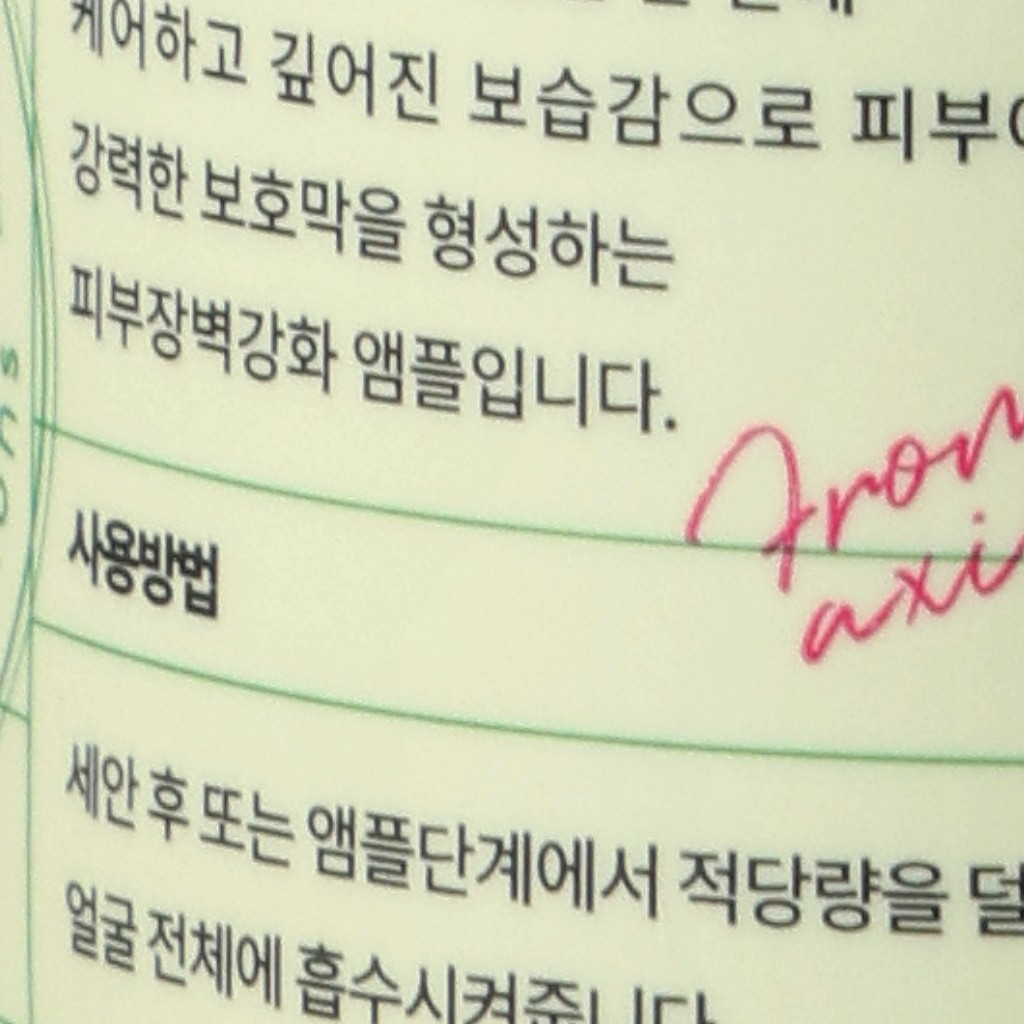 케어하고 깊어진 보습감으로
강력한 보호막을 형성하는
피부장벽강화 앰플입니다.
사용방법
세안 후 또는 앰플단계에서 적당량을
얼굴 전체에 흡수시켜줍니다